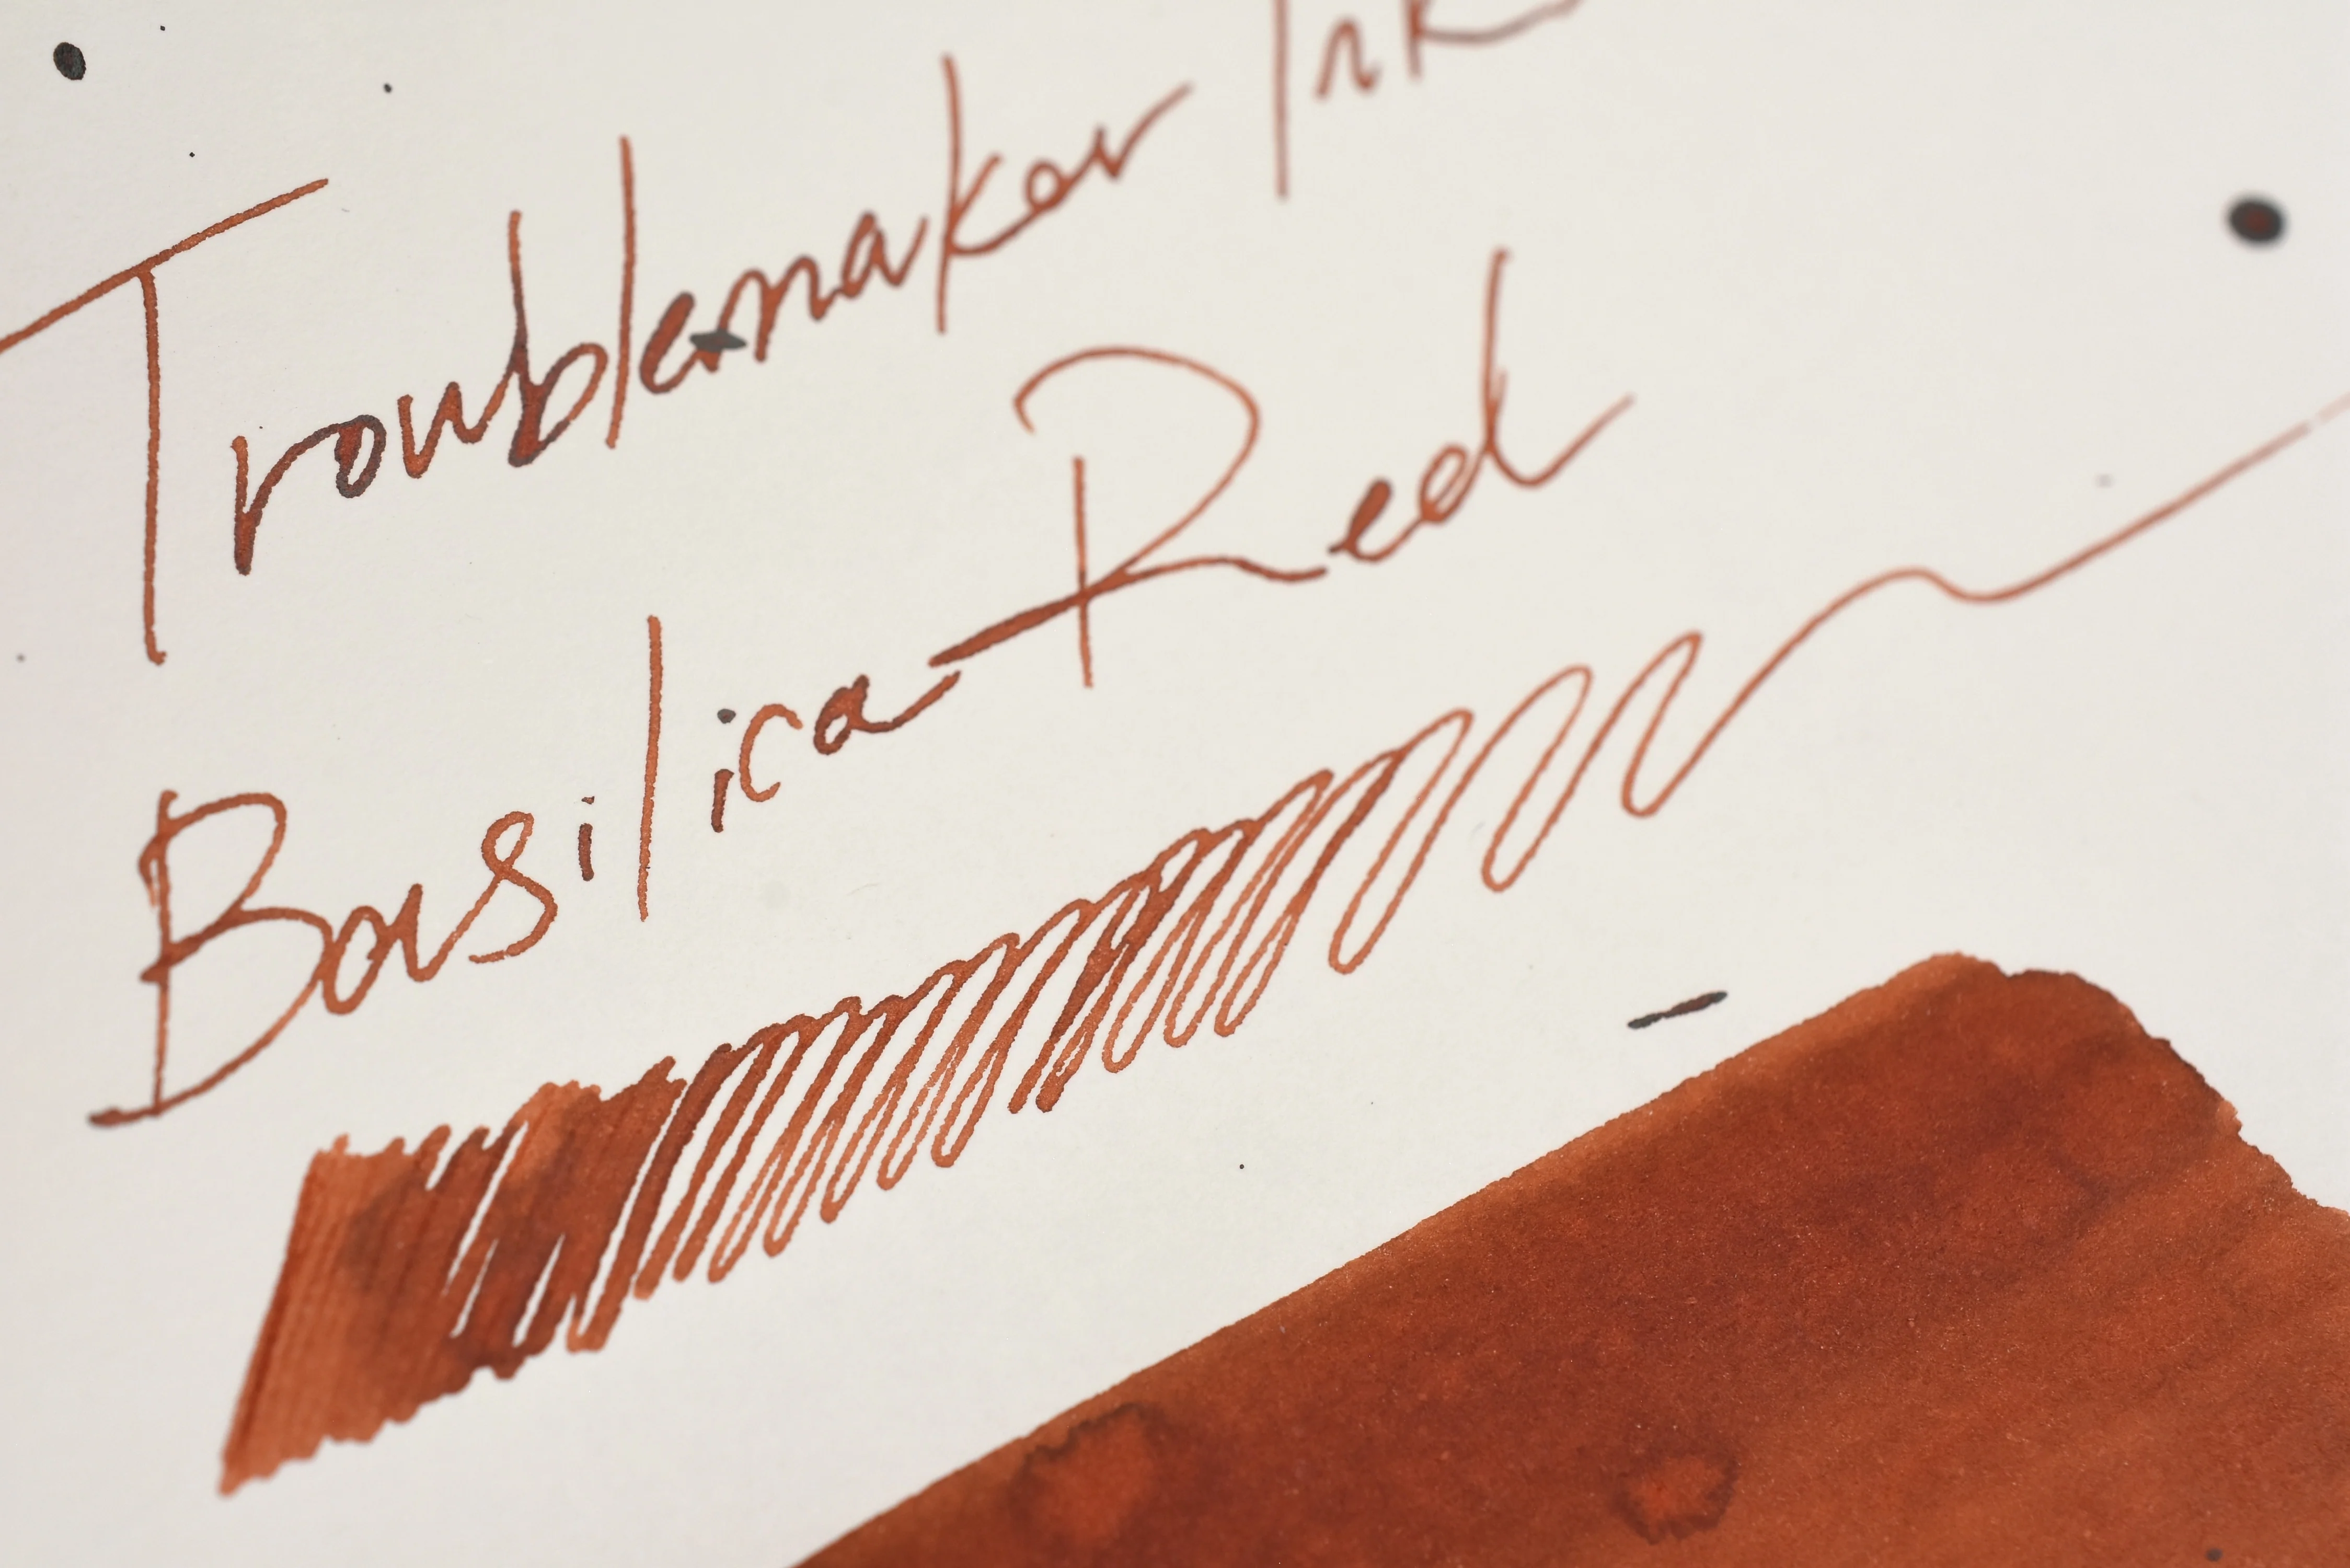 Troublemaker Ink
Basilica Red